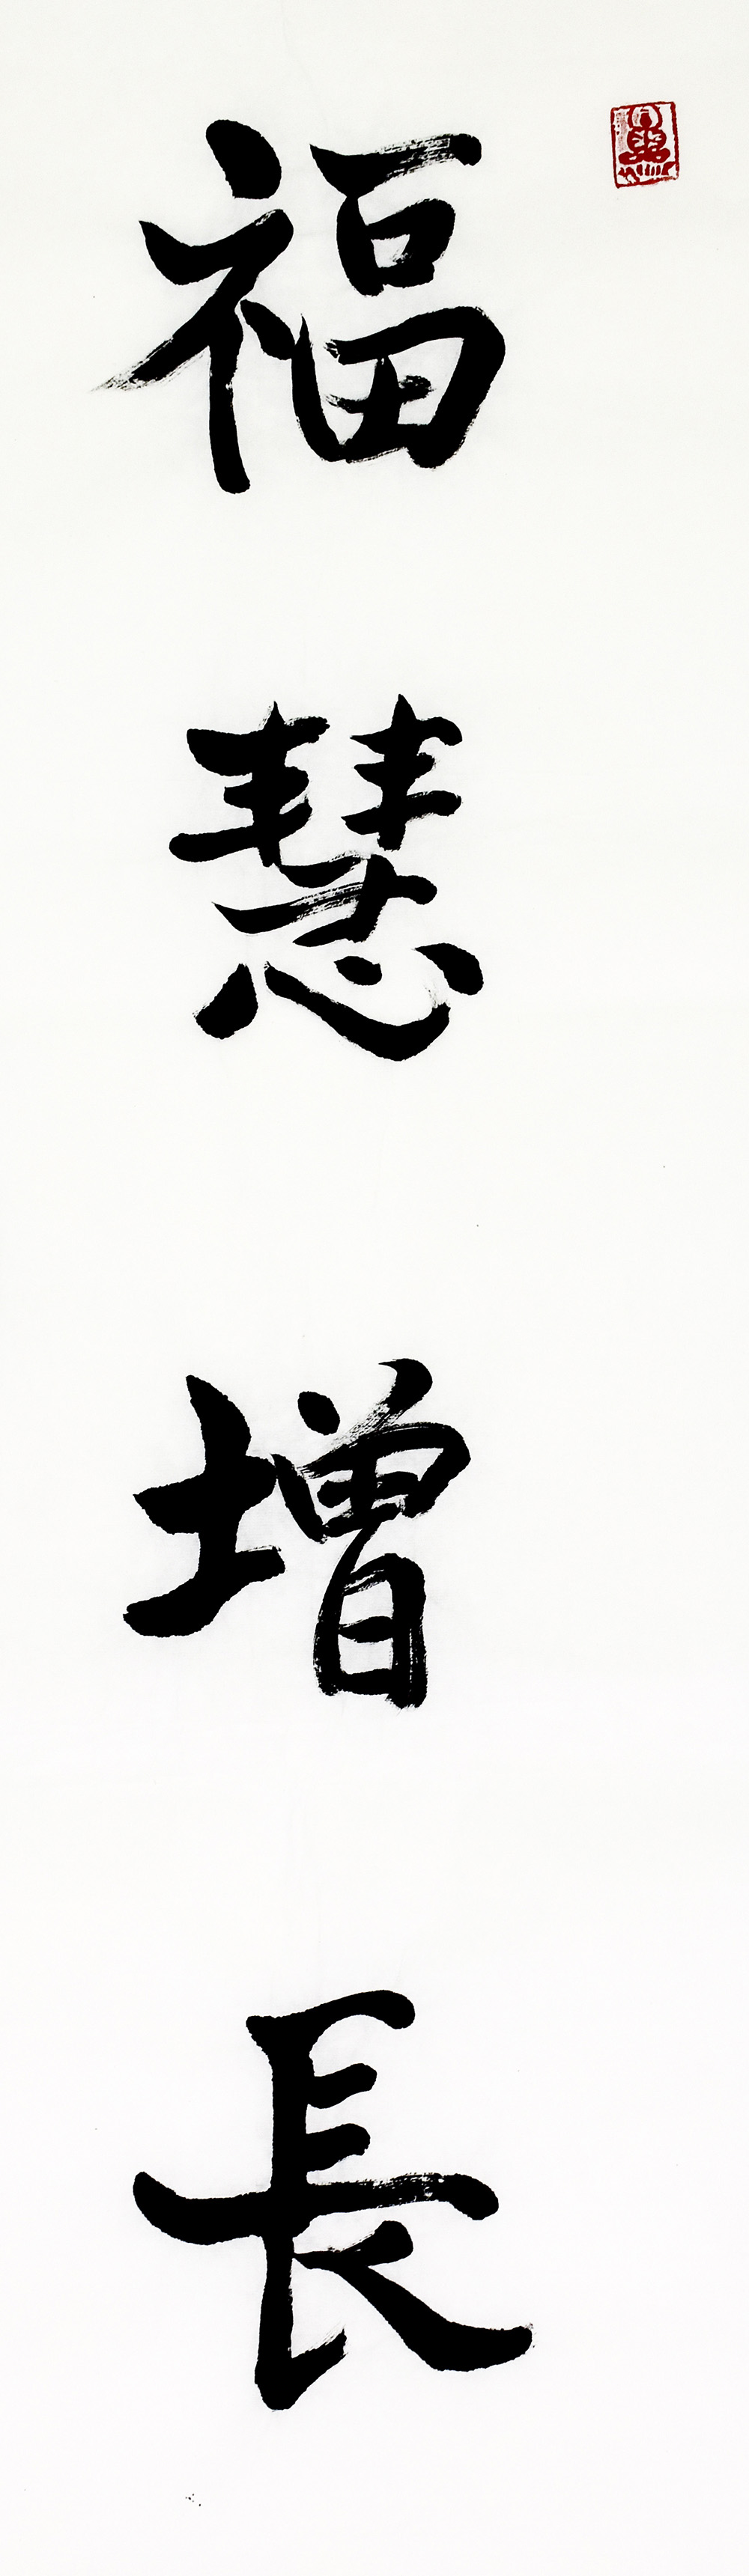 福慧增長